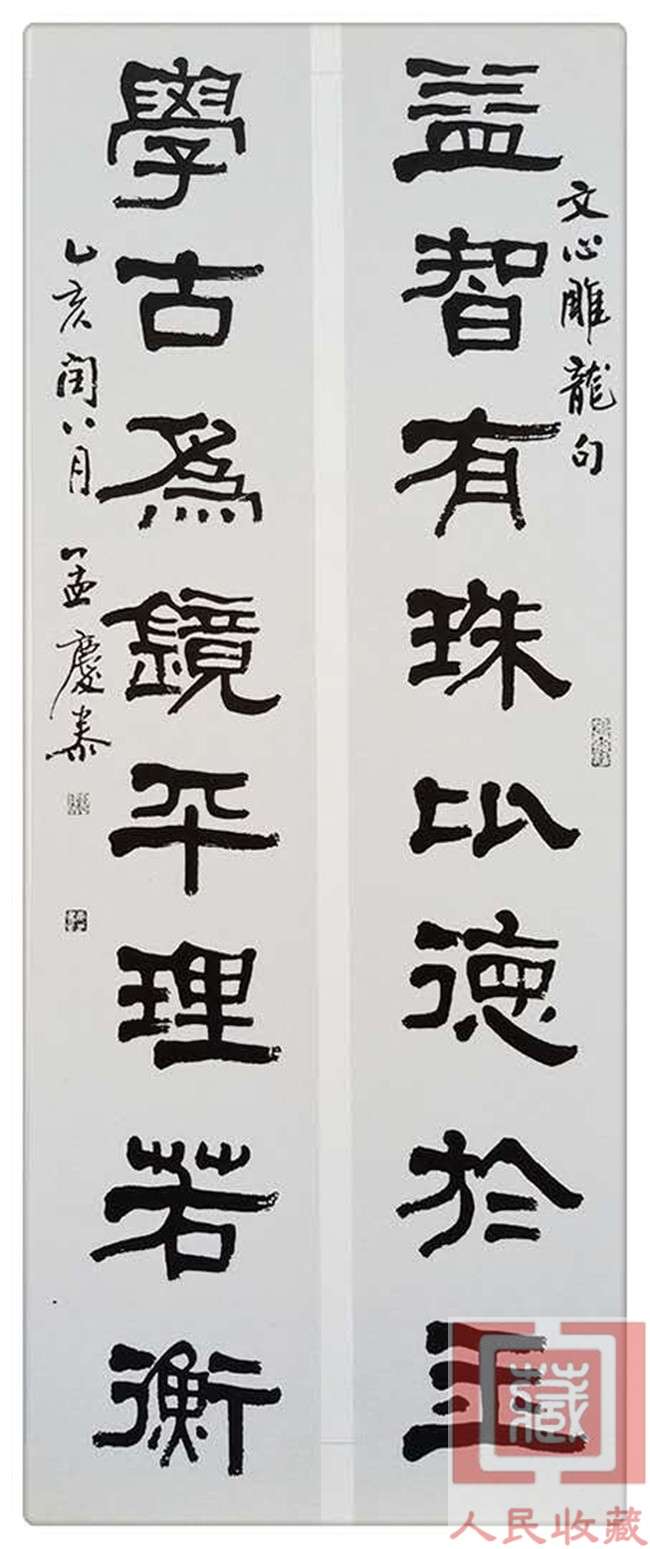 文心雕龍句
益智有珠比德於玉
學古爲鏡平理若衡
乙亥閏八月 孟慶泰
藏
人民收藏